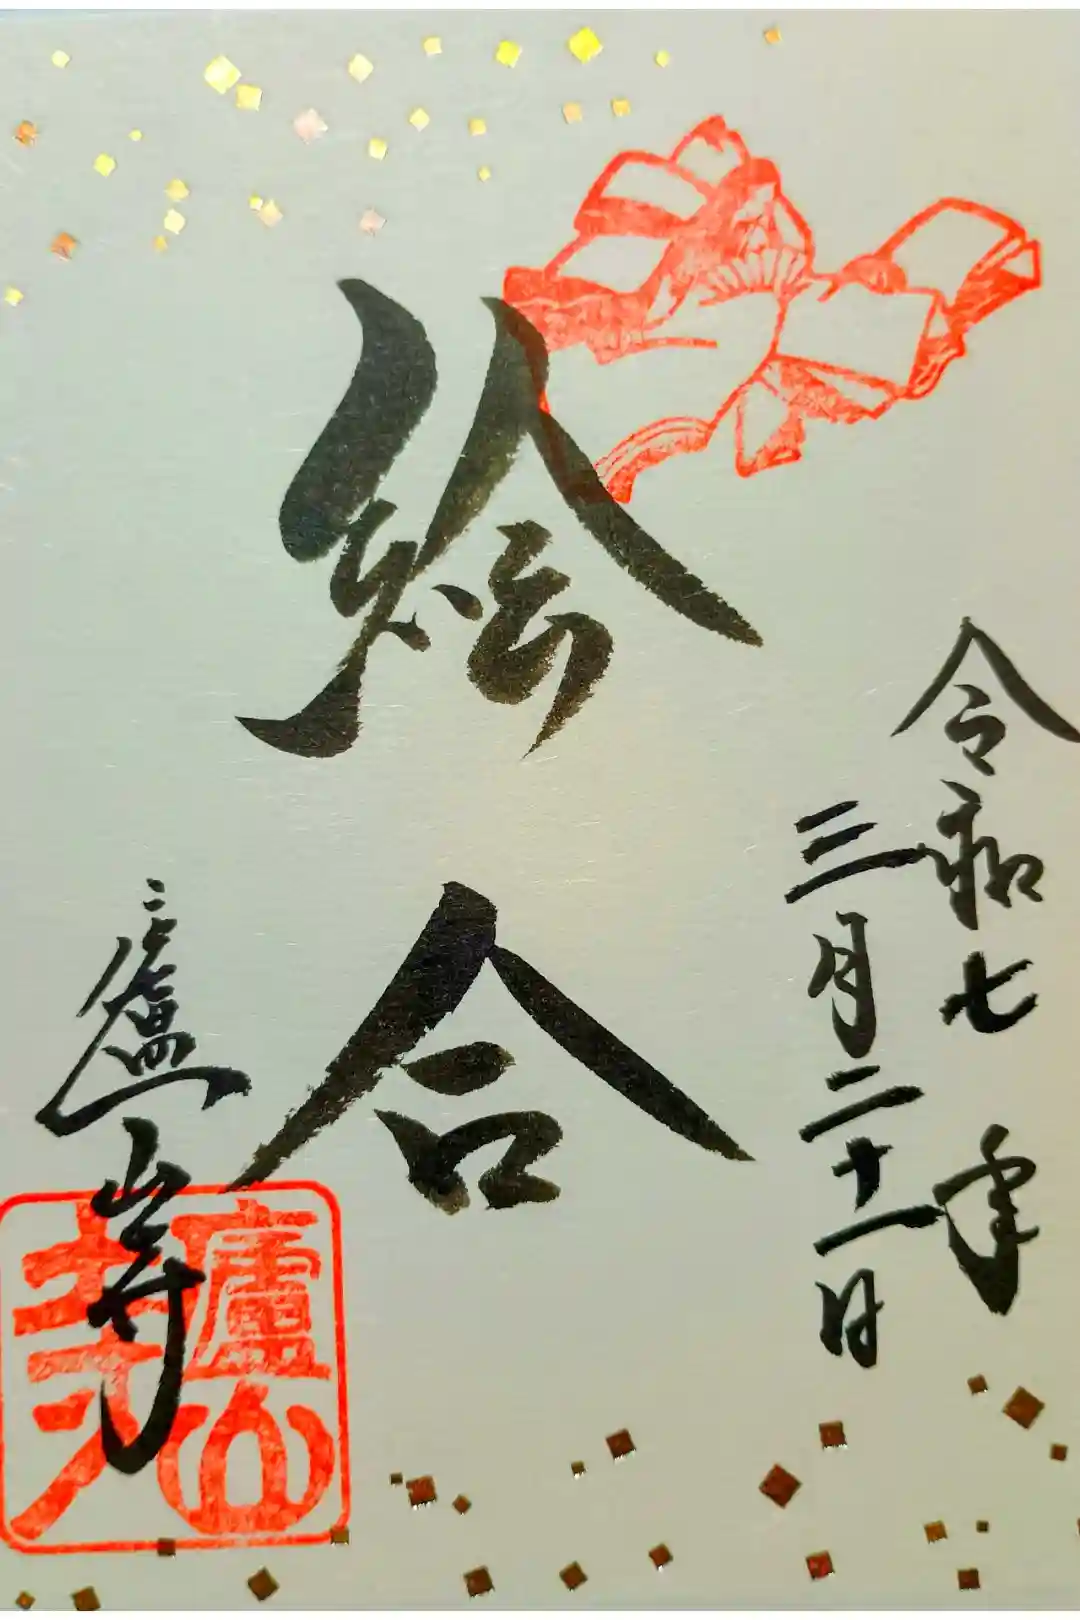 令和七年
三月二十一日
絵合
廬山寺
廬山寺